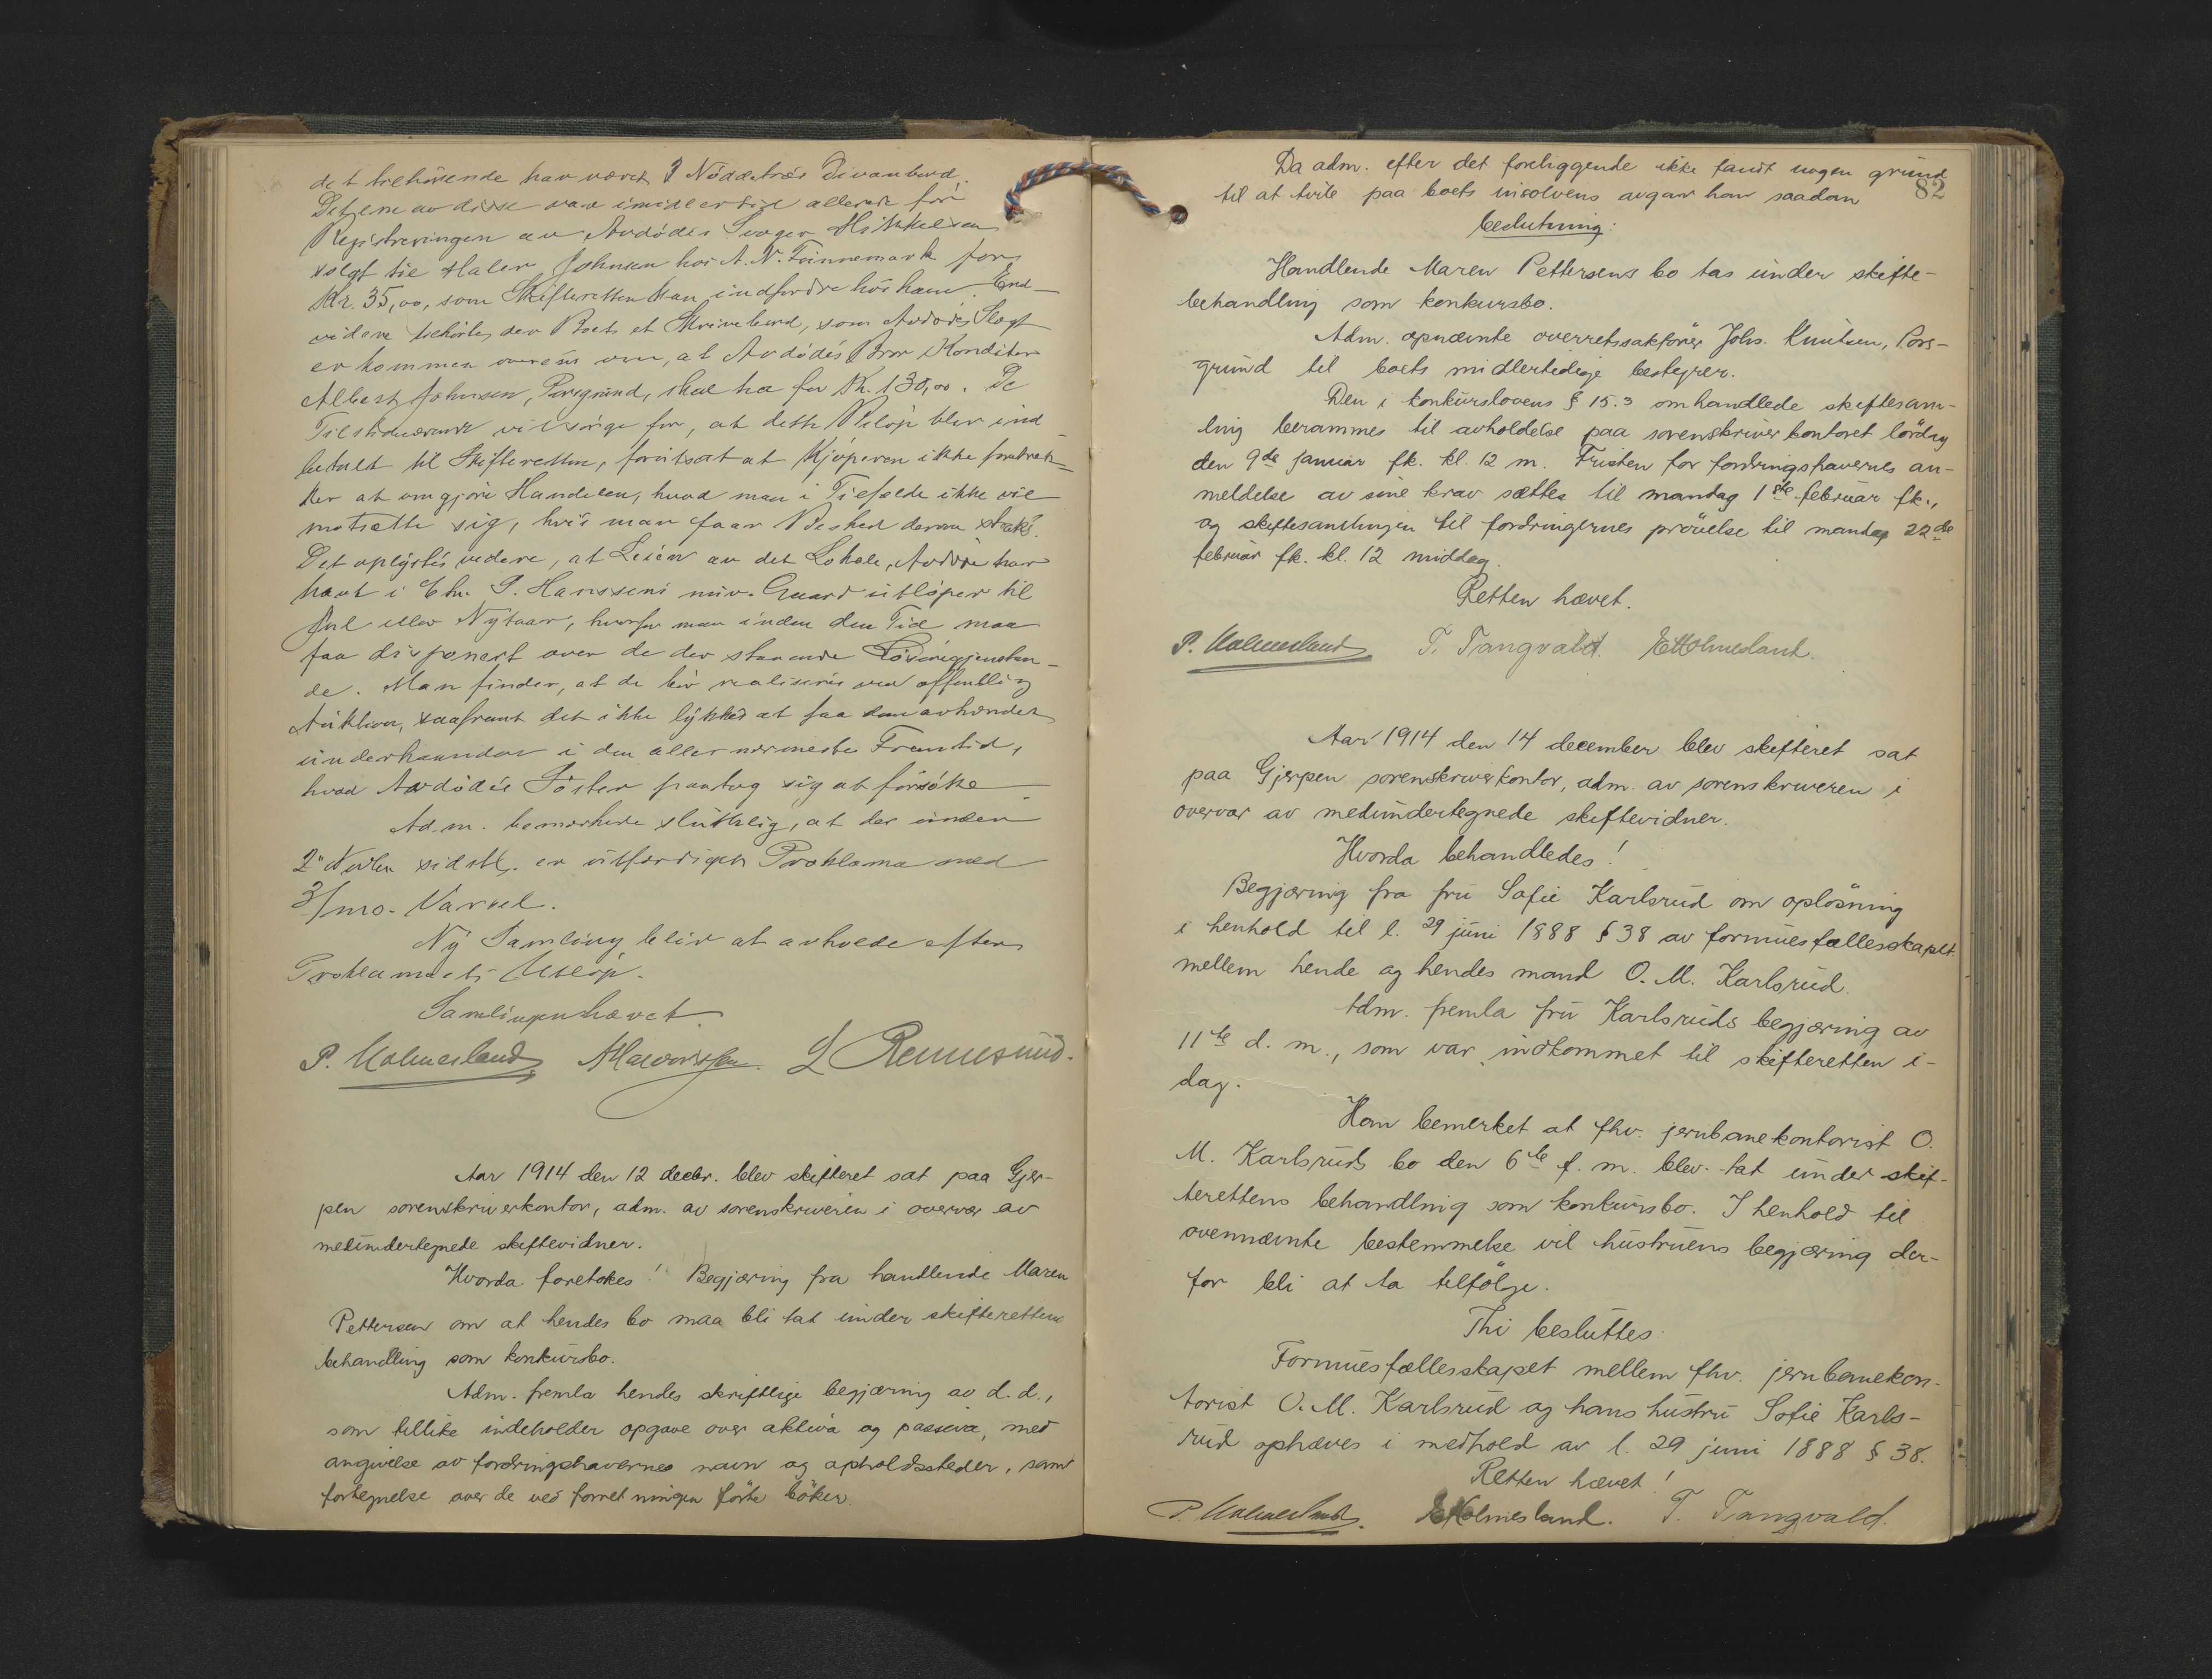 det tilhørende har været 2 Nöddetræs Divanbord.
Det ene av disse var imidlertid allerede før
Registreringen av Avdødes Svoger Mikkelsen
solgt til Maler Johnsen hos A. N. Finnemark for
Kr. 35,00, som Skifteretten kan indfordre hos ham. End-
videre tilhörte der Boet et Skrivebord, som Avdødes Slegt
er kommen overens om, at Avdödes Bror Konditor
Albert Johnsen, Porsgrund, skal ha for Kr. 130,00. De
Tilstedeværende vil sörge for, at dette Belöp blir ind-
betalt til Skifteretten, forutsat at Kjöperen ikke foretræk-
ker at omgjöre Handelen, hvad man i Tilfælde ikke vil
motsætte sig, hvis man faar Beshed derom straks.
Det oplystes videre, at Leien av det Lokale, Avdöde har
havt i Chr. P. Hanssens nuv. Gaard utlöper til
Jul eller Nytaar, hvorfor man inden den Tid maa
faa disponert over de der staaende Lösöregjenstan-
de. Man finder, at de bör realiseres ved offentlig
Auktion, saafremt det ikke lykkes at faa dem avhændet
underhaanden i den allernærmeste Fremtid,
hvad Avdödes Söster paatog sig at forsöke.
Adm. bemærkede sluttelig, at der under
2den Novbr. sidstl. er utfærdiget Proklama med
3/mo. Varsel.
Ny Samling blir at avholde efter
Proklamaets Utlöp.
Samlingen hævet.
P. Holmesland
Aar 1914 den 12 decbr. blev skifteret sat paa Gjer-
pen sorenskriverkontor, adm. av sorenskriveren i overvær av
medundertegnede skiftevidner.
Hvorda foretokes! Begjæring fra handlende Maren
Pettersen om at hendes bo maa bli tat under skifterettens
behandling som konkursbo.
Adm. fremla hendes skriftlige begjæring av d. d.,
som tillike indeholder opgave over aktiva og passiva, med
angivelse av fordringshavernes navn og opholdssteder, samt
fortegnelse over de ved forretningen førte böker.
82
Da adm. efter det foreliggende ikke fandt nogen grund
til at tvile paa boets insolvens avgav han saadan
beslutning:
Handlende Maren Pettersens bo tas under skifte-
behandling som konkursbo.
Adm. opnævnte overretssakförer Johs. Knutsen, Pors-
grund til boets midlertidige bestyrer.
Den i konkurslovens § 15.3 omhandlede skiftesam-
ling berammes til avholdelse paa sorenskriverkontoret lördag
den 9de januar fk. kl. 12 m. Fristen for fordringshavernes an-
meldelse av sine krav sættes til mandag 1ste februar fk.,
og skiftesamlingen til fordringernes prövelse til mandag 22de
februar fk. kl. 12 middag.
Retten hævet.
P. Holmesland T. Tangvald. E Holmesland.
Aar 1914 den 14 december blev skifteret sat
paa Gjerpen sorenskriverkontor, adm. av sorenskriveren i
overvær av medundertegnede skiftevidner.
Hvorda behandledes!
Begjæring fra fru Sofie Karlsrud om oplösning
i henhold til l. 29 juni 1888 § 38 av formuesfællesskapet
mellem hende og hendes mand O. M. Karlsrud.
Adm. fremla fru Karlsruds begjæring av
11te d. m., som var indkommet til skifteretten i-
dag.
Han bemerket at fhv. jernbanekontorist O.
M. Karlsruds bo den 6te f. m. blev tat under skif-
terettens behandling som konkursbo. I henhold til
ovennævnte bestemmelse vil hustruens begjæring der-
for bli at ta tilfölge.
Thi besluttes:
Formuesfællesskapet mellem fhv. jernbanekon-
torist O. M. Karlsrud og hans hustru Sofie Karls-
rud ophæves i medhold av l. 29 juni 1888 § 38.
Retten hævet!
P. Holmesland. E Holmesland. T. Tangvald.